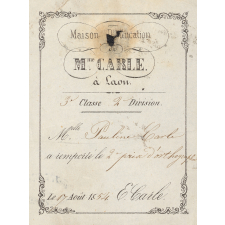 Maison d'Education
de
Mme CARLE.
à Laon.
3e Classe 2e Division.
Melle Pauline Carle
a remporté le 2e prix d'orthographe
Le 17 Août 1854 E. Carle.